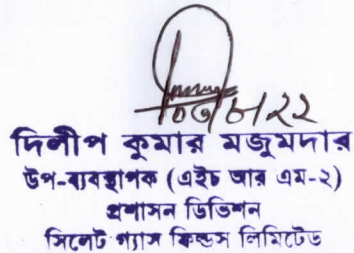 দিলীপ কুমার মজুমদার
উপ-ব্যবস্থাপক (এইচ আর এম-২)
প্রশাসন ডিভিশন
সিলেট গ্যাস ফিল্ডস লিমিটেড